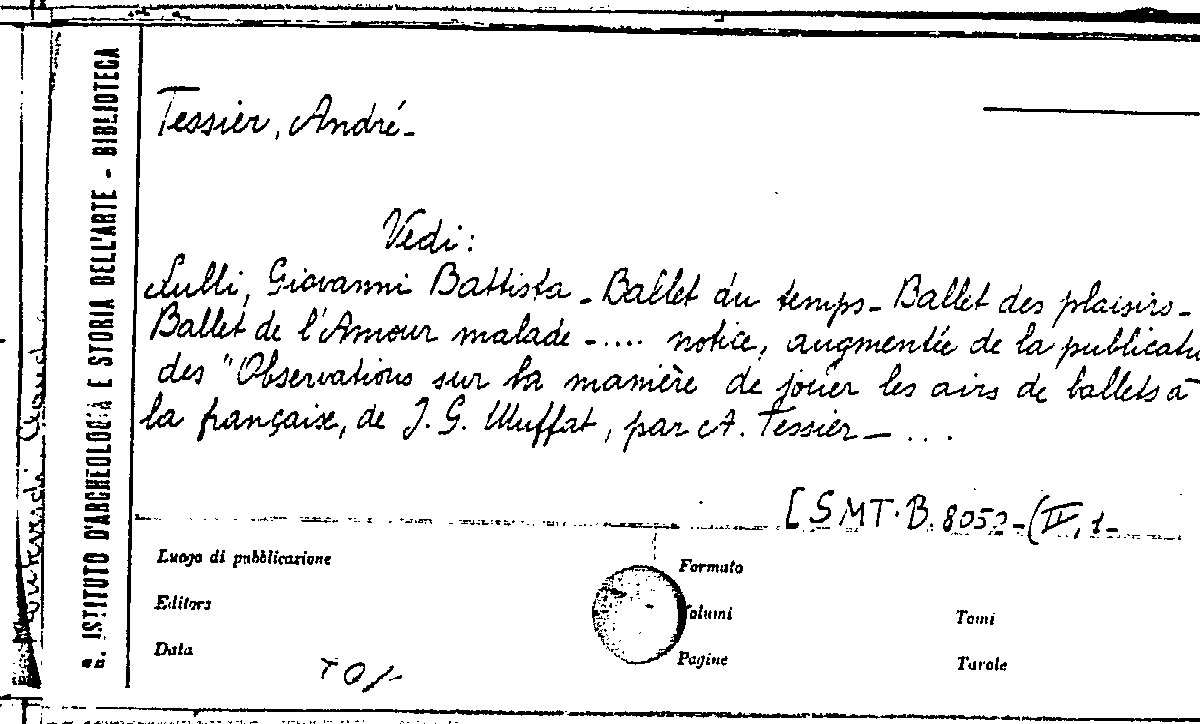 R. ISTITUTO D'ARCHEOLOGIA E STORIA DELL'ARTE - BIBLIOTECA
Tessier, André-
Vedi:
Lulli, Giovanni Battista - Ballet du temps - Ballet des plaisirs -
Ballet de l'Amour malade -.... notice, augmentée de la publicatu
des "Observations sur la manière de jouer les airs de ballets à
la française, de J. G. Muffat, par A. Tessier - ...
[SMT.B. 8052-(II, 1-
Luogo di pubblicazione
Formato
Editore
Volumi
Tomi
Data
Pagine
Tavole